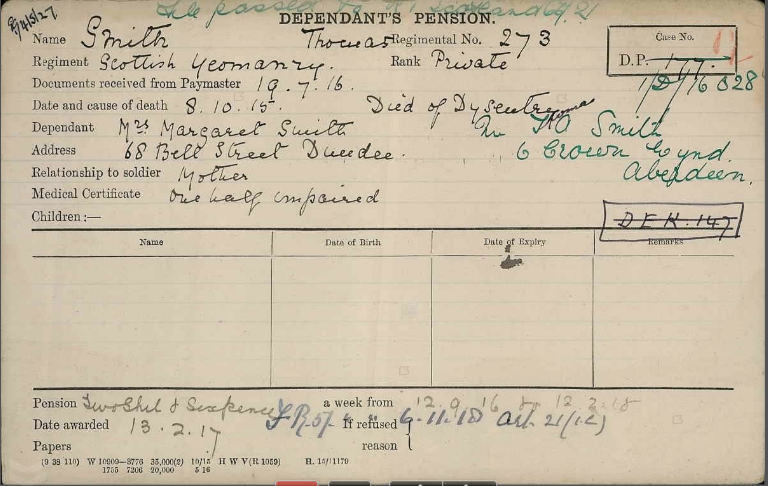 8/4/5/27. File passed to R. Scotland 21
DEPENDANT'S PENSION.
Name Smith Thomas Regimental No. 273
Case No.
D.P. 177.
Regiment Scottish Yeomanry. Rank Private
1/D/16028
Documents received from Paymaster 19.7.16.
Date and cause of death 8.10.15. Died of Dysentery
Dependant Mrs Margaret Smith
Smith
Address 68 Bell Street Dundee.
6 Crown Wynd.
Aberdeen.
Relationship to soldier Mother
Medical Certificate One half impaired
Children:—
DEK.147
Name Date of Birth Date of Expiry Remarks
Pension Two Shil & Sixpence a week from 12.9.16 12.2.18
Date awarded 13.2.17 F.R 5/- If refused 6.11.18 Art 21(1c)
Papers reason
(9 38 110) W 10909—3776 35,000(2) 10/15 H W V(R 1059) H. 15/1179
1755 7206 20,000 5 16